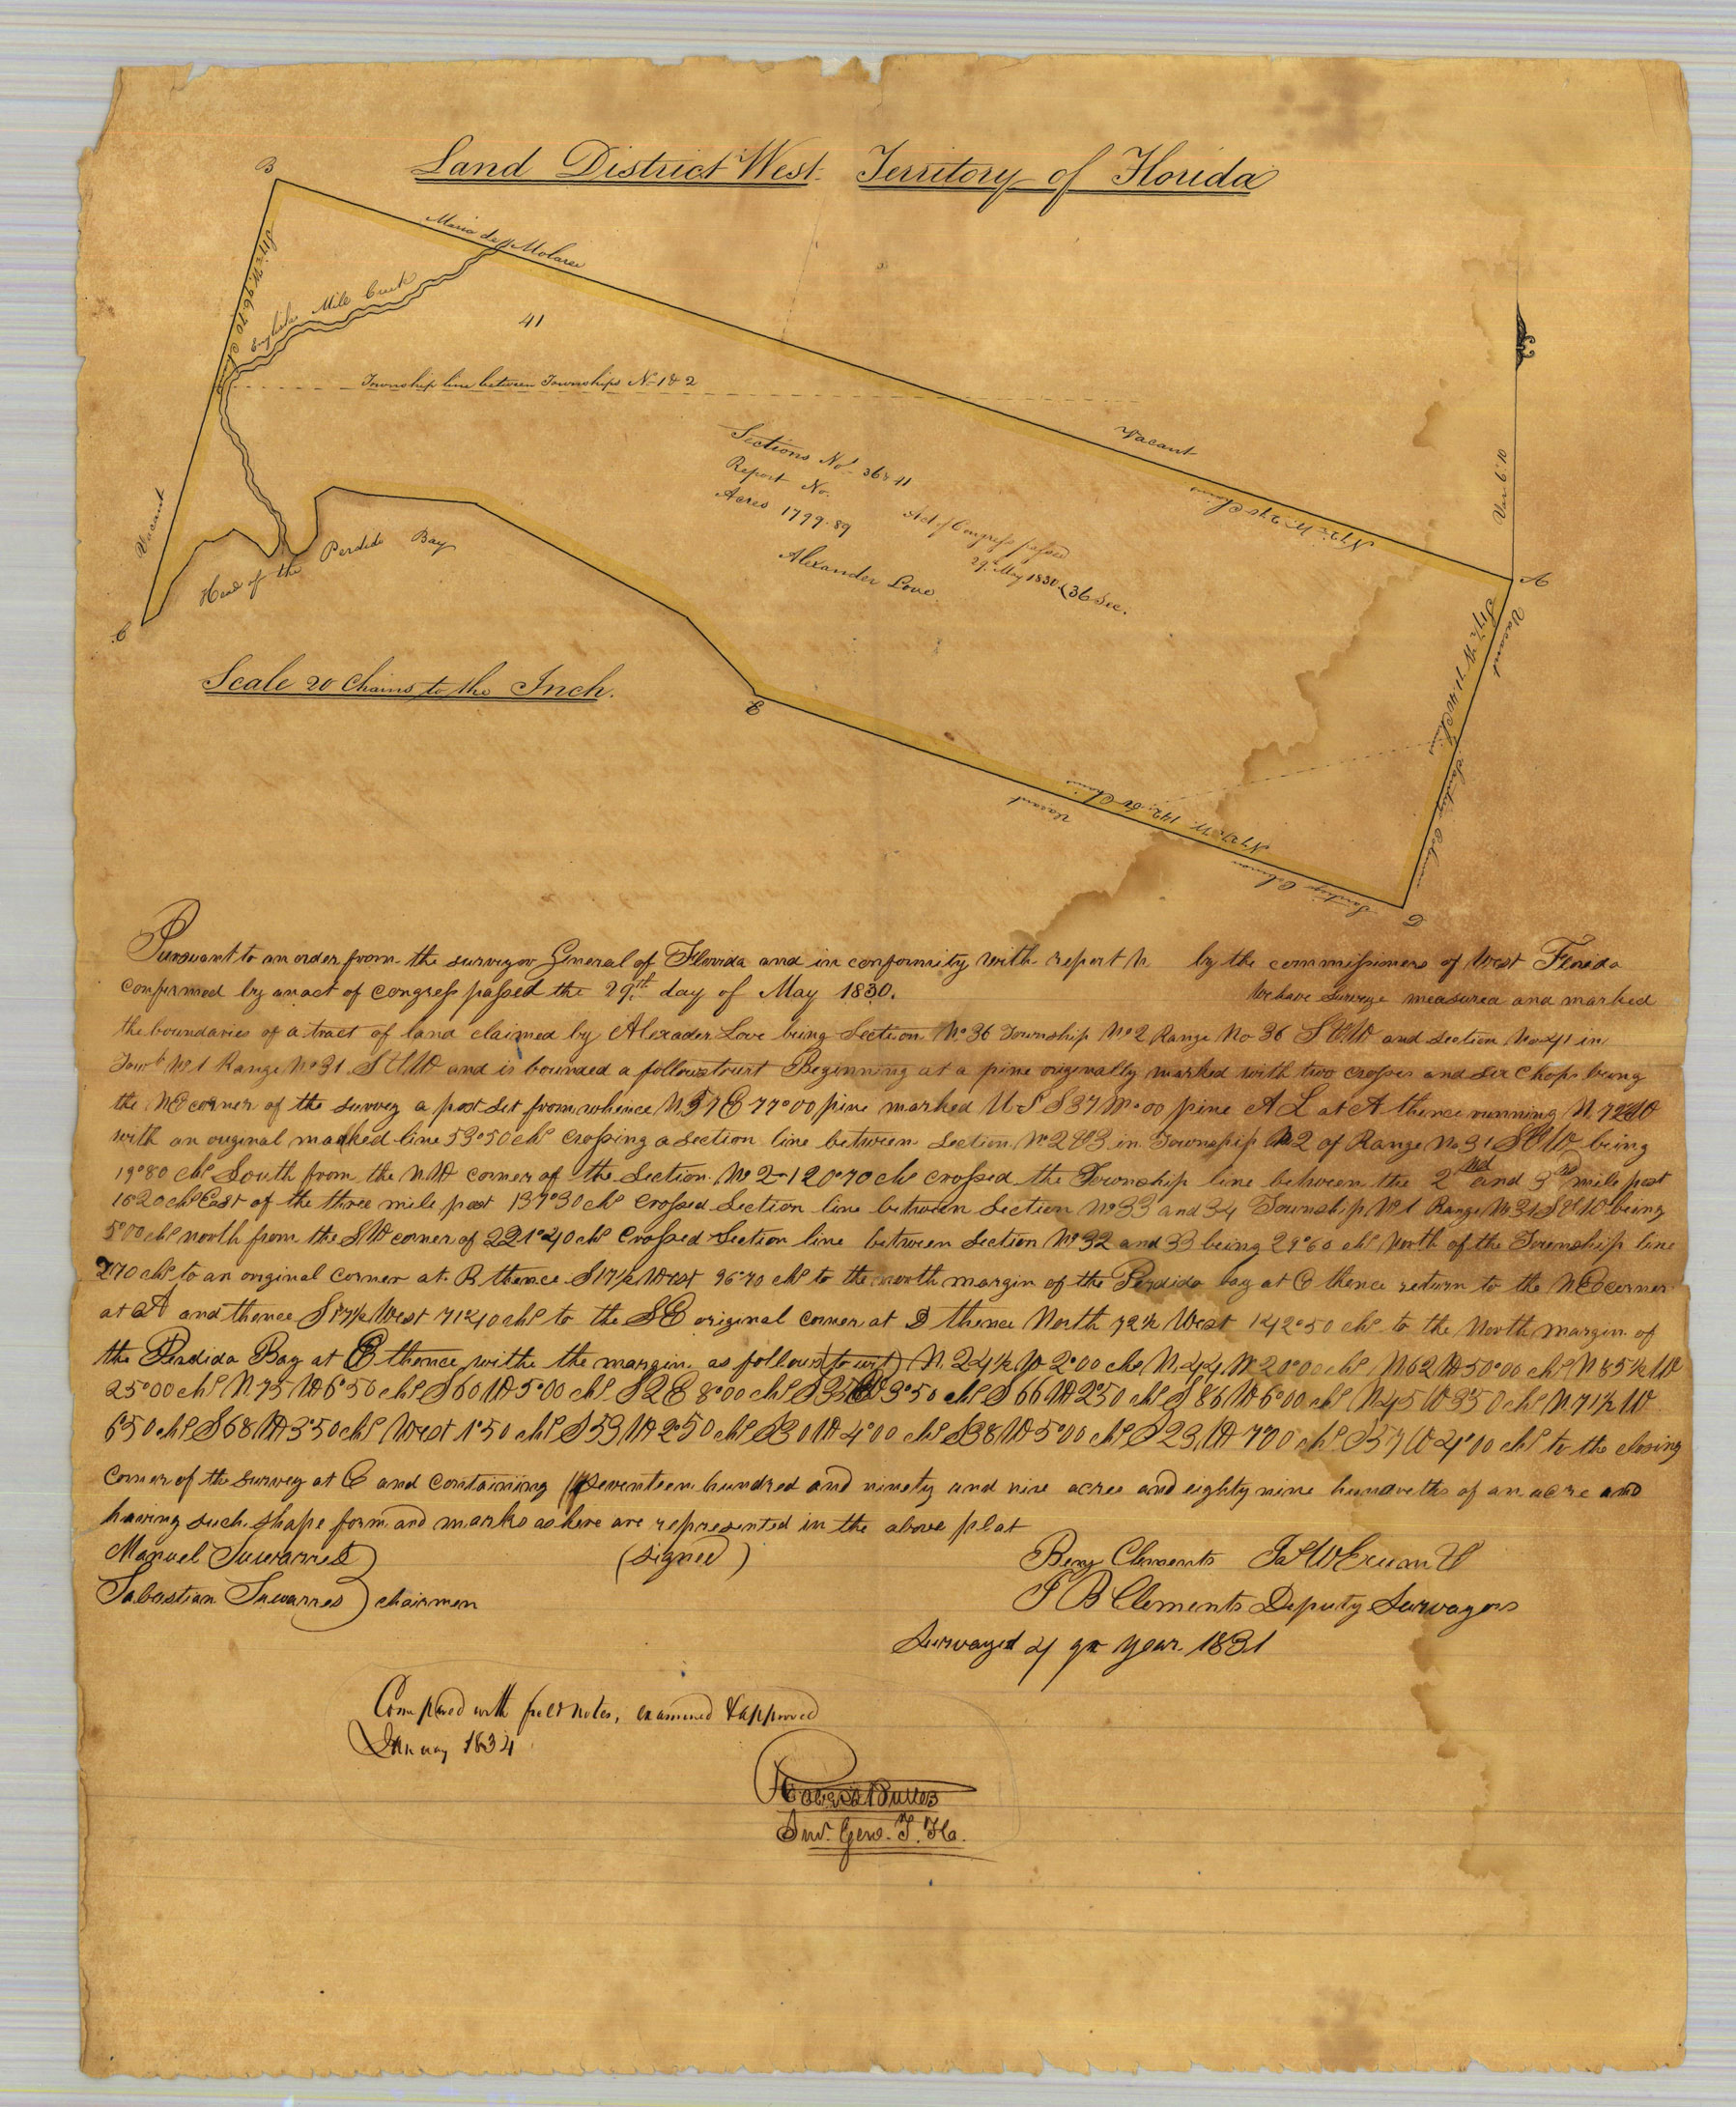 Land District West Territory of Florida
B
Maria de Molares
Mile Creek
41
Township line between Townships No 1 & 2
Vacant
Sections Nos 36 & 41
Report No.
Acres 1799.89
Act of Congress passed
29th May 1830 (36 Sec.
Alexander Love
Vacant
A
Vacant
Head of the Perdido Bay
C
Scale 20 Chains to the Inch.
E
Vacant
D
Pursuant to an order from the surveyor General of Florida and in conformity with report N. by the commissioners of West Florida
confirmed by an act of congress passed the 29th day of May 1830. We have surveye measured and marked
the boundaries of a tract of land claimed by Alexader Love being Section No 36 Township No 2 Range No 36 S & W and section No 41 in
No 1 Range No 31 S & W and is bounded a follows Beginning at a pine originally marked with two crosses and six chops being
the NE corner of the survey a post set from whence pine marked pine A L at A thence running N. 72
with an original marked line 53°50 chs crossing a section line between section No 2 & 3 in Township No 2 of Range No 31 S & W being
19°80 chs South from the NW corner of the Section No 2 - 120°70 chs crossed the Township line between the 2nd and 3rd mile post
16 20 chs East of the three mile post 137°30 chs crossed section line between section No 33 and 34 Township No 1 Range No 31 S & W being
5°00 chs north from the SW corner of 221°40 chs crossed section line between section No 32 and 33 being 29°60 chs North of the Township line
270 chs to an original corner at B thence S 17½ West 96°70 chs to the north margin of the Perdido bay at C thence return to the NE corner
at A and thence S 17½ West 71 40 chs to the SE original corner at D thence North 72½ West 142°50 chs to the North margin of
the Perdida Bay at E thence withe the margin as follows (to wit) N. 24½ W 2°00 chs N. 44 W 20°00 chs N 62 W 50°00 chs N 85½ W
25°00 chs N. 75 W 6°50 chs S 60 W 5°00 chs S 2 E 8°00 chs 3°50 chs S 66 W 2 50 chs S 86 W 6°00 chs N 45 W 3 50 chs N. 71½ W
6 50 chs S 68 W 3°50 chs West 1°50 chs S 53 W 2°50 chs S 30 W 4°00 chs S 38 W 5°00 chs S 23 W 7 00 chs S 37 W 4°00 chs to the closing
corner of the survey at C and containing seventeen hundred and ninety and nine acres and eighty nine hundreths of an acre and
having such shape form and marks as here are represented in the above plat
Manuel Suwarres (signed) Benj Clements
Sabastian Suwarres chairmen J B Clements Deputy Survayors
Survayed 4 qr year 1831
Compared with field notes, examined & approved
January 1834
Robert Butler
Sur. Genl. T. Fla.